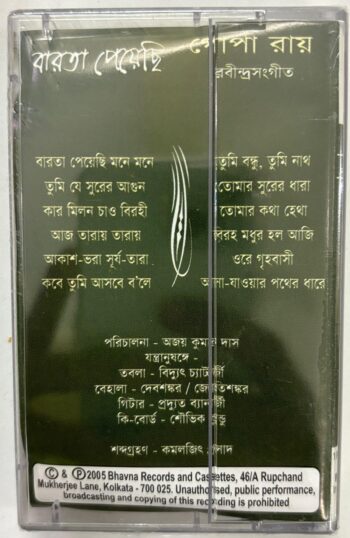 বারতা পেয়েছি
গোপা রায়
রবীন্দ্রসংগীত
বারতা পেয়েছি মনে মনে
তুমি যে সুরের আগুন
কার মিলন চাও বিরহী
আজ তারায় তারায়
আকাশ-ভরা সূর্য-তারা
কবে তুমি আসবে ব'লে
তুমি বন্ধু, তুমি নাথ
তোমার সুরের ধারা
তোমার কথা হেথা
বিরহ মধুর হল আজি
ওরে গৃহবাসী
আসা-যাওয়ার পথের ধারে
পরিচালনা - অজয় কুমার দাস
যন্ত্রানুষঙ্গে -
তবলা - বিদ্যুৎ চ্যাটার্জী
বেহালা - দেবশঙ্কর / জ্যোতিশঙ্কর
গিটার - প্রদ্যুত ব্যানার্জী
কি-বোর্ড - শৌভিক কুন্ডু
শব্দগ্রহণ - কমলজিৎ প্রসাদ
C & P 2005 Bhavna Records and Cassettes, 46/A Rupchand
Mukherjee Lane, Kolkata - 700 025. Unauthorised, public performance,
broadcasting and copying of this recording is prohibited